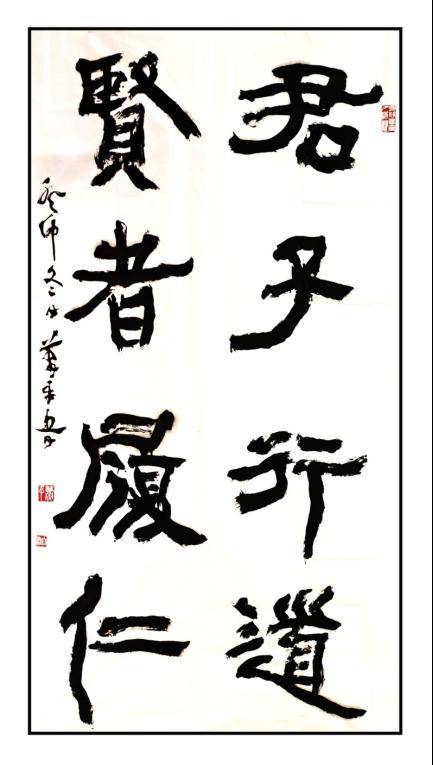 君子行道
賢者履仁
癸卯冬